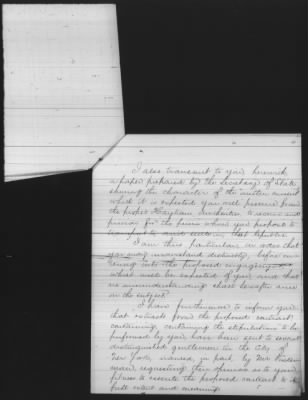 I also transmit to you herewith
a paper prepared by the Secretary of State
showing the character of the written consent
which it is expected you will procure from
the proper Haytian authorities to receive and
provide for the persons whom you propose to
transport to and settle in that Republic
I am thus particular in order that
you may understand distinctly, before en-
tering into the proposed engagement
what will be expected of you, and that
no misunderstanding shall hereafter arise
on the subject.
I have furthermore to inform you
that extracts from the proposed contract
containing, containing the stipulations to be
performed by you have been sent to several
distinguished gentlemen in the City of
New York, named, in part, by
requesting their opinions as to your
fitness to execute the proposed contract in its
full extent and meaning